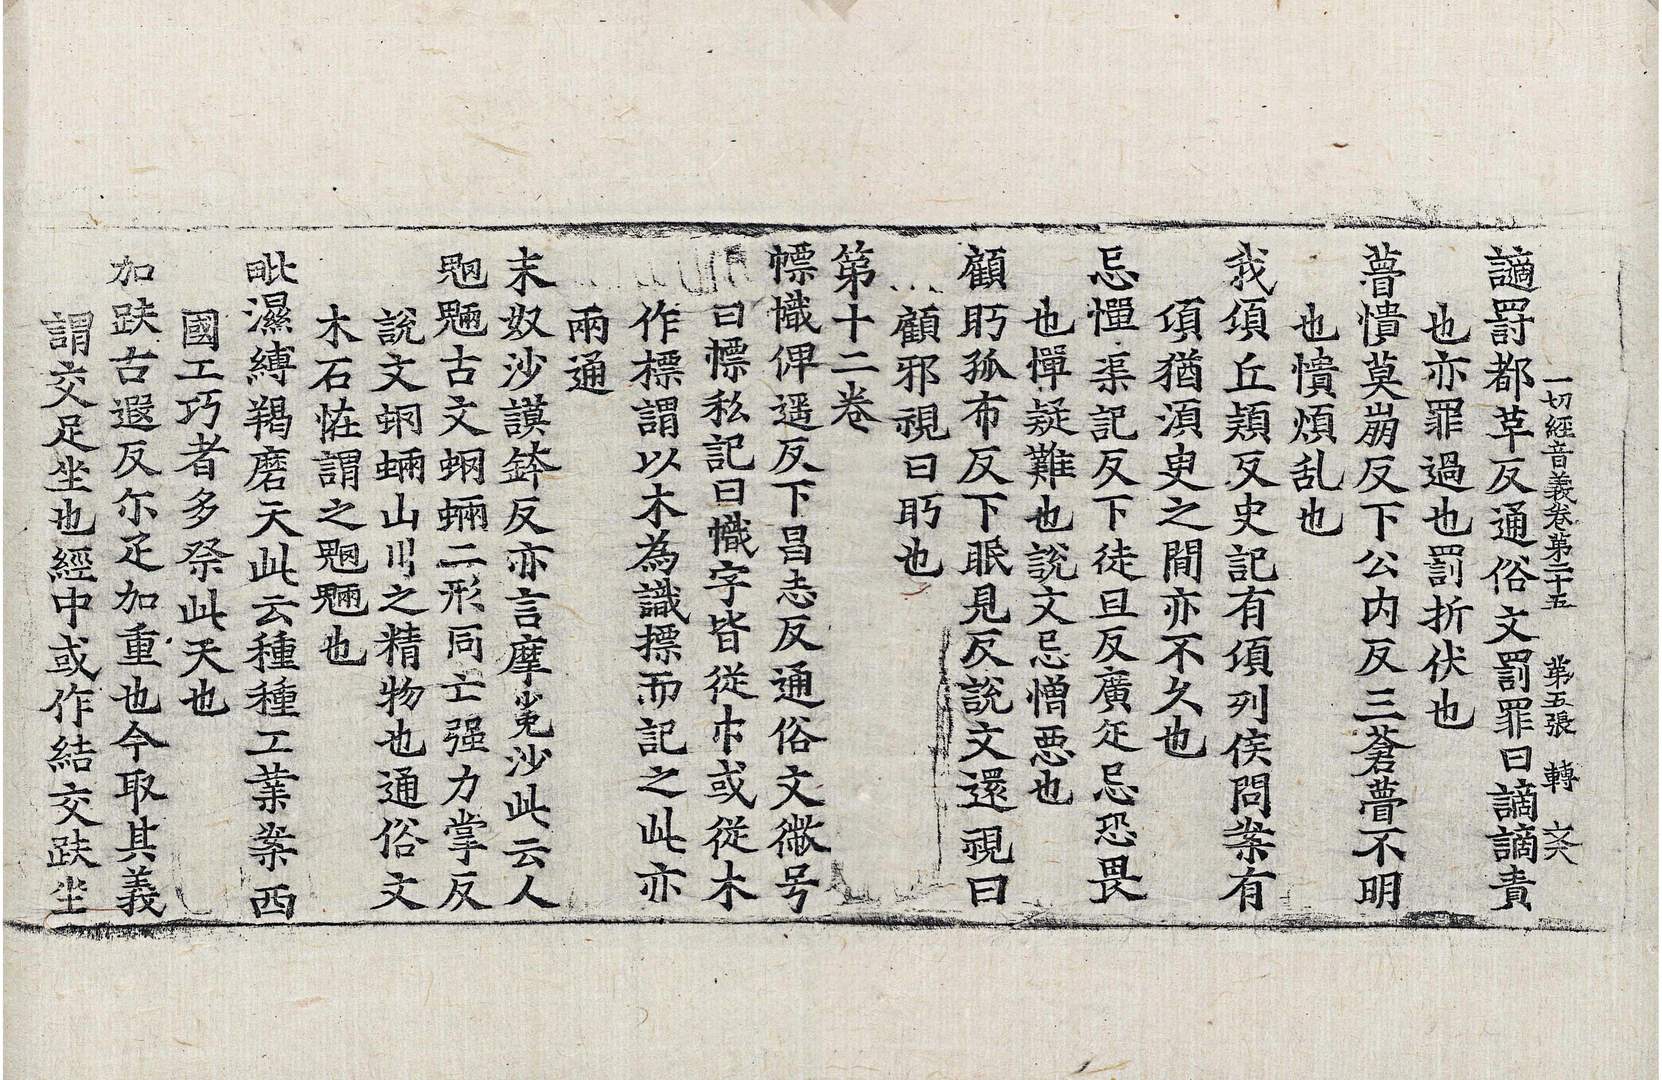 一切經音義卷第二十五　第五張　轉　文大
讁罸都革反通俗文罰罪曰讁讁責
也亦罪過也罰折伏也
瞢憒莫崩反下公内反三蒼瞢不明
也憒煩乱也
我須丘穎反史記有須列侯問案有
須猶湏臾之間亦不久也
忌憚渠記反下徒旦反廣疋忌恐畏
也憚疑難也說文忌憎惡也
顧眄孤布反下眠見反說文還視曰
顧邪視曰眄也
第十二卷
幖幟俾遥反下昌志反通俗文徽号
曰幖私記曰幟字皆從巾或從木
作標謂以木為識摽而記之此亦
兩通
末奴沙謨鉢反亦言摩㝹沙此云人
魍魎古文蛧蜽二形同亡强力掌反
說文蛧蜽山川之精物也通俗文
木石恠謂之魍魎也
毗濕縛羯磨天此云種種工業案西
國工巧者多祭此天也
加趺古遐反尔疋加重也今取其義
謂交足坐也經中或作結交趺坐